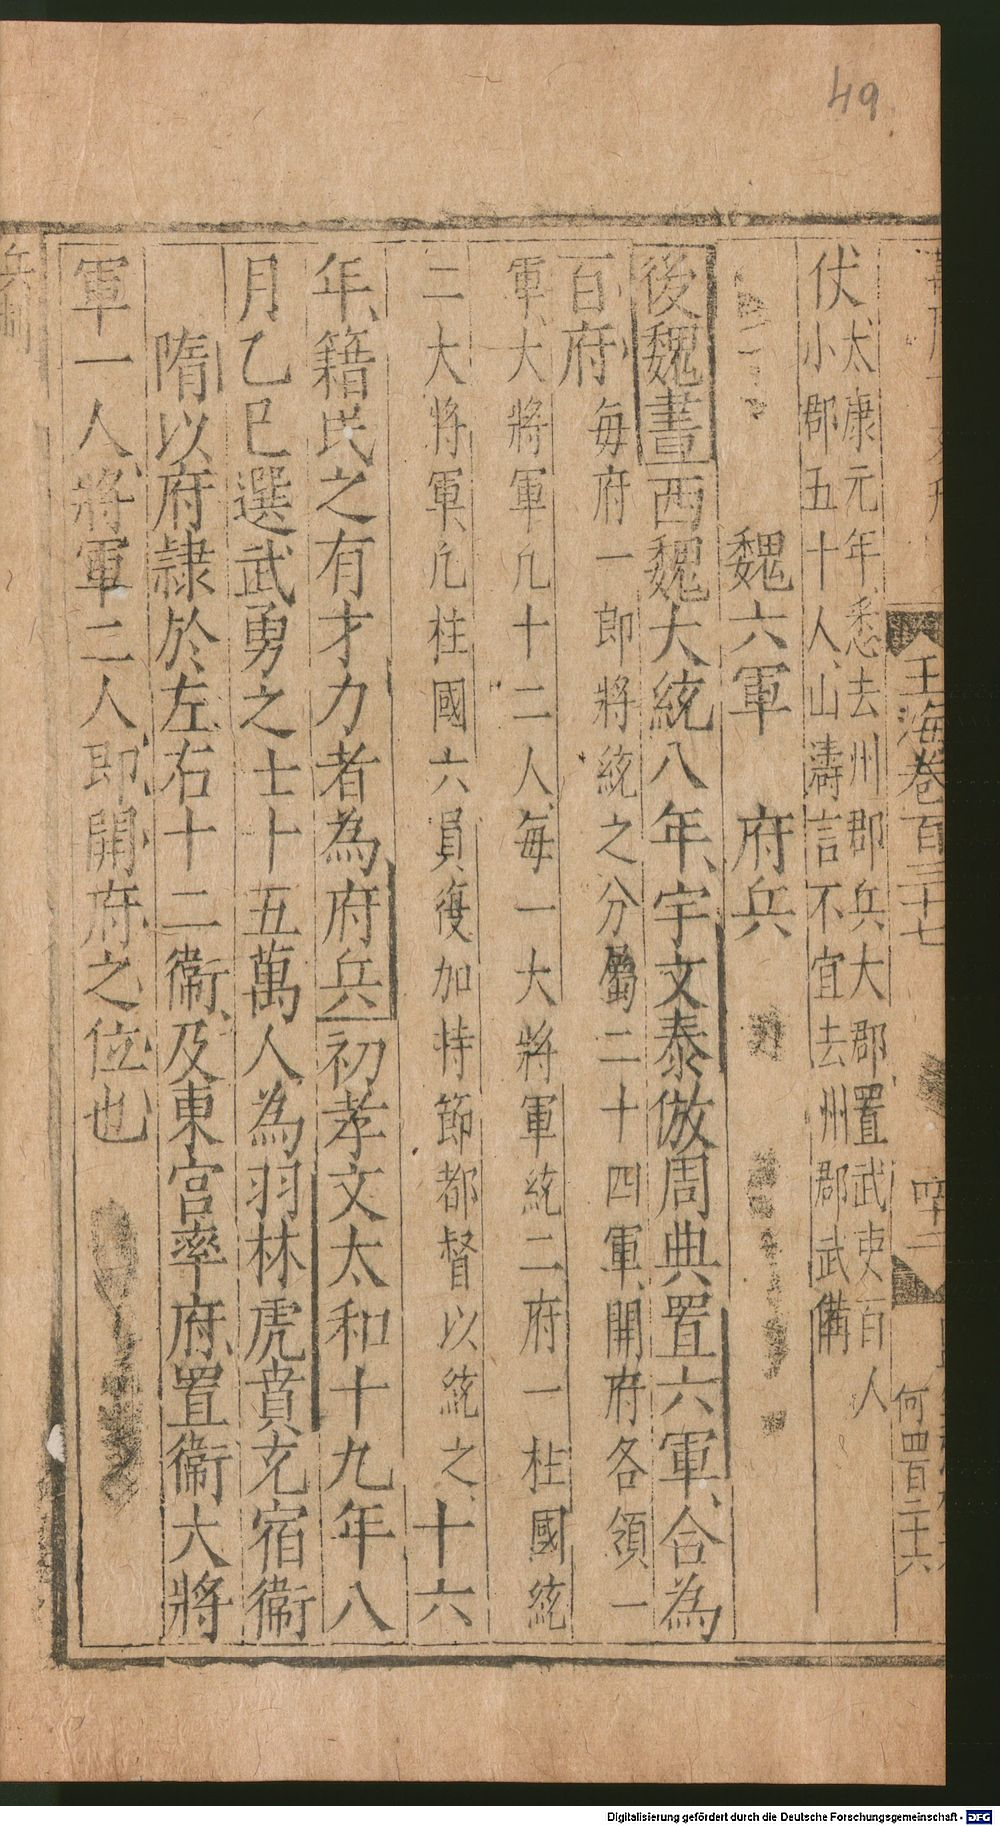 49
玉海卷百三十七
四十二
何四百二十六
伏太康元年悉去州郡兵大郡置武吏百人
小郡五十人山濤言不宜去州郡武備
魏六軍 府兵
後魏書西魏大統八年宇文泰倣周典置六軍合為
百府每府一郎將統之分屬二十四軍開府各領一
軍大將軍凡十二人每一大將軍統二府一柱國統
二大將軍凡柱國六員復加持節都督以統之十六
年籍民之有才力者為府兵初孝文太和十九年八
月乙巳選武勇之士十五萬人為羽林虎賁充宿衞
隋以府隷於左右十二衞及東宮率府置衞大將
軍一人將軍二人即開府之位也
Digitalisierung gefördert durch die Deutsche Forschungsgemeinschaft - DFG